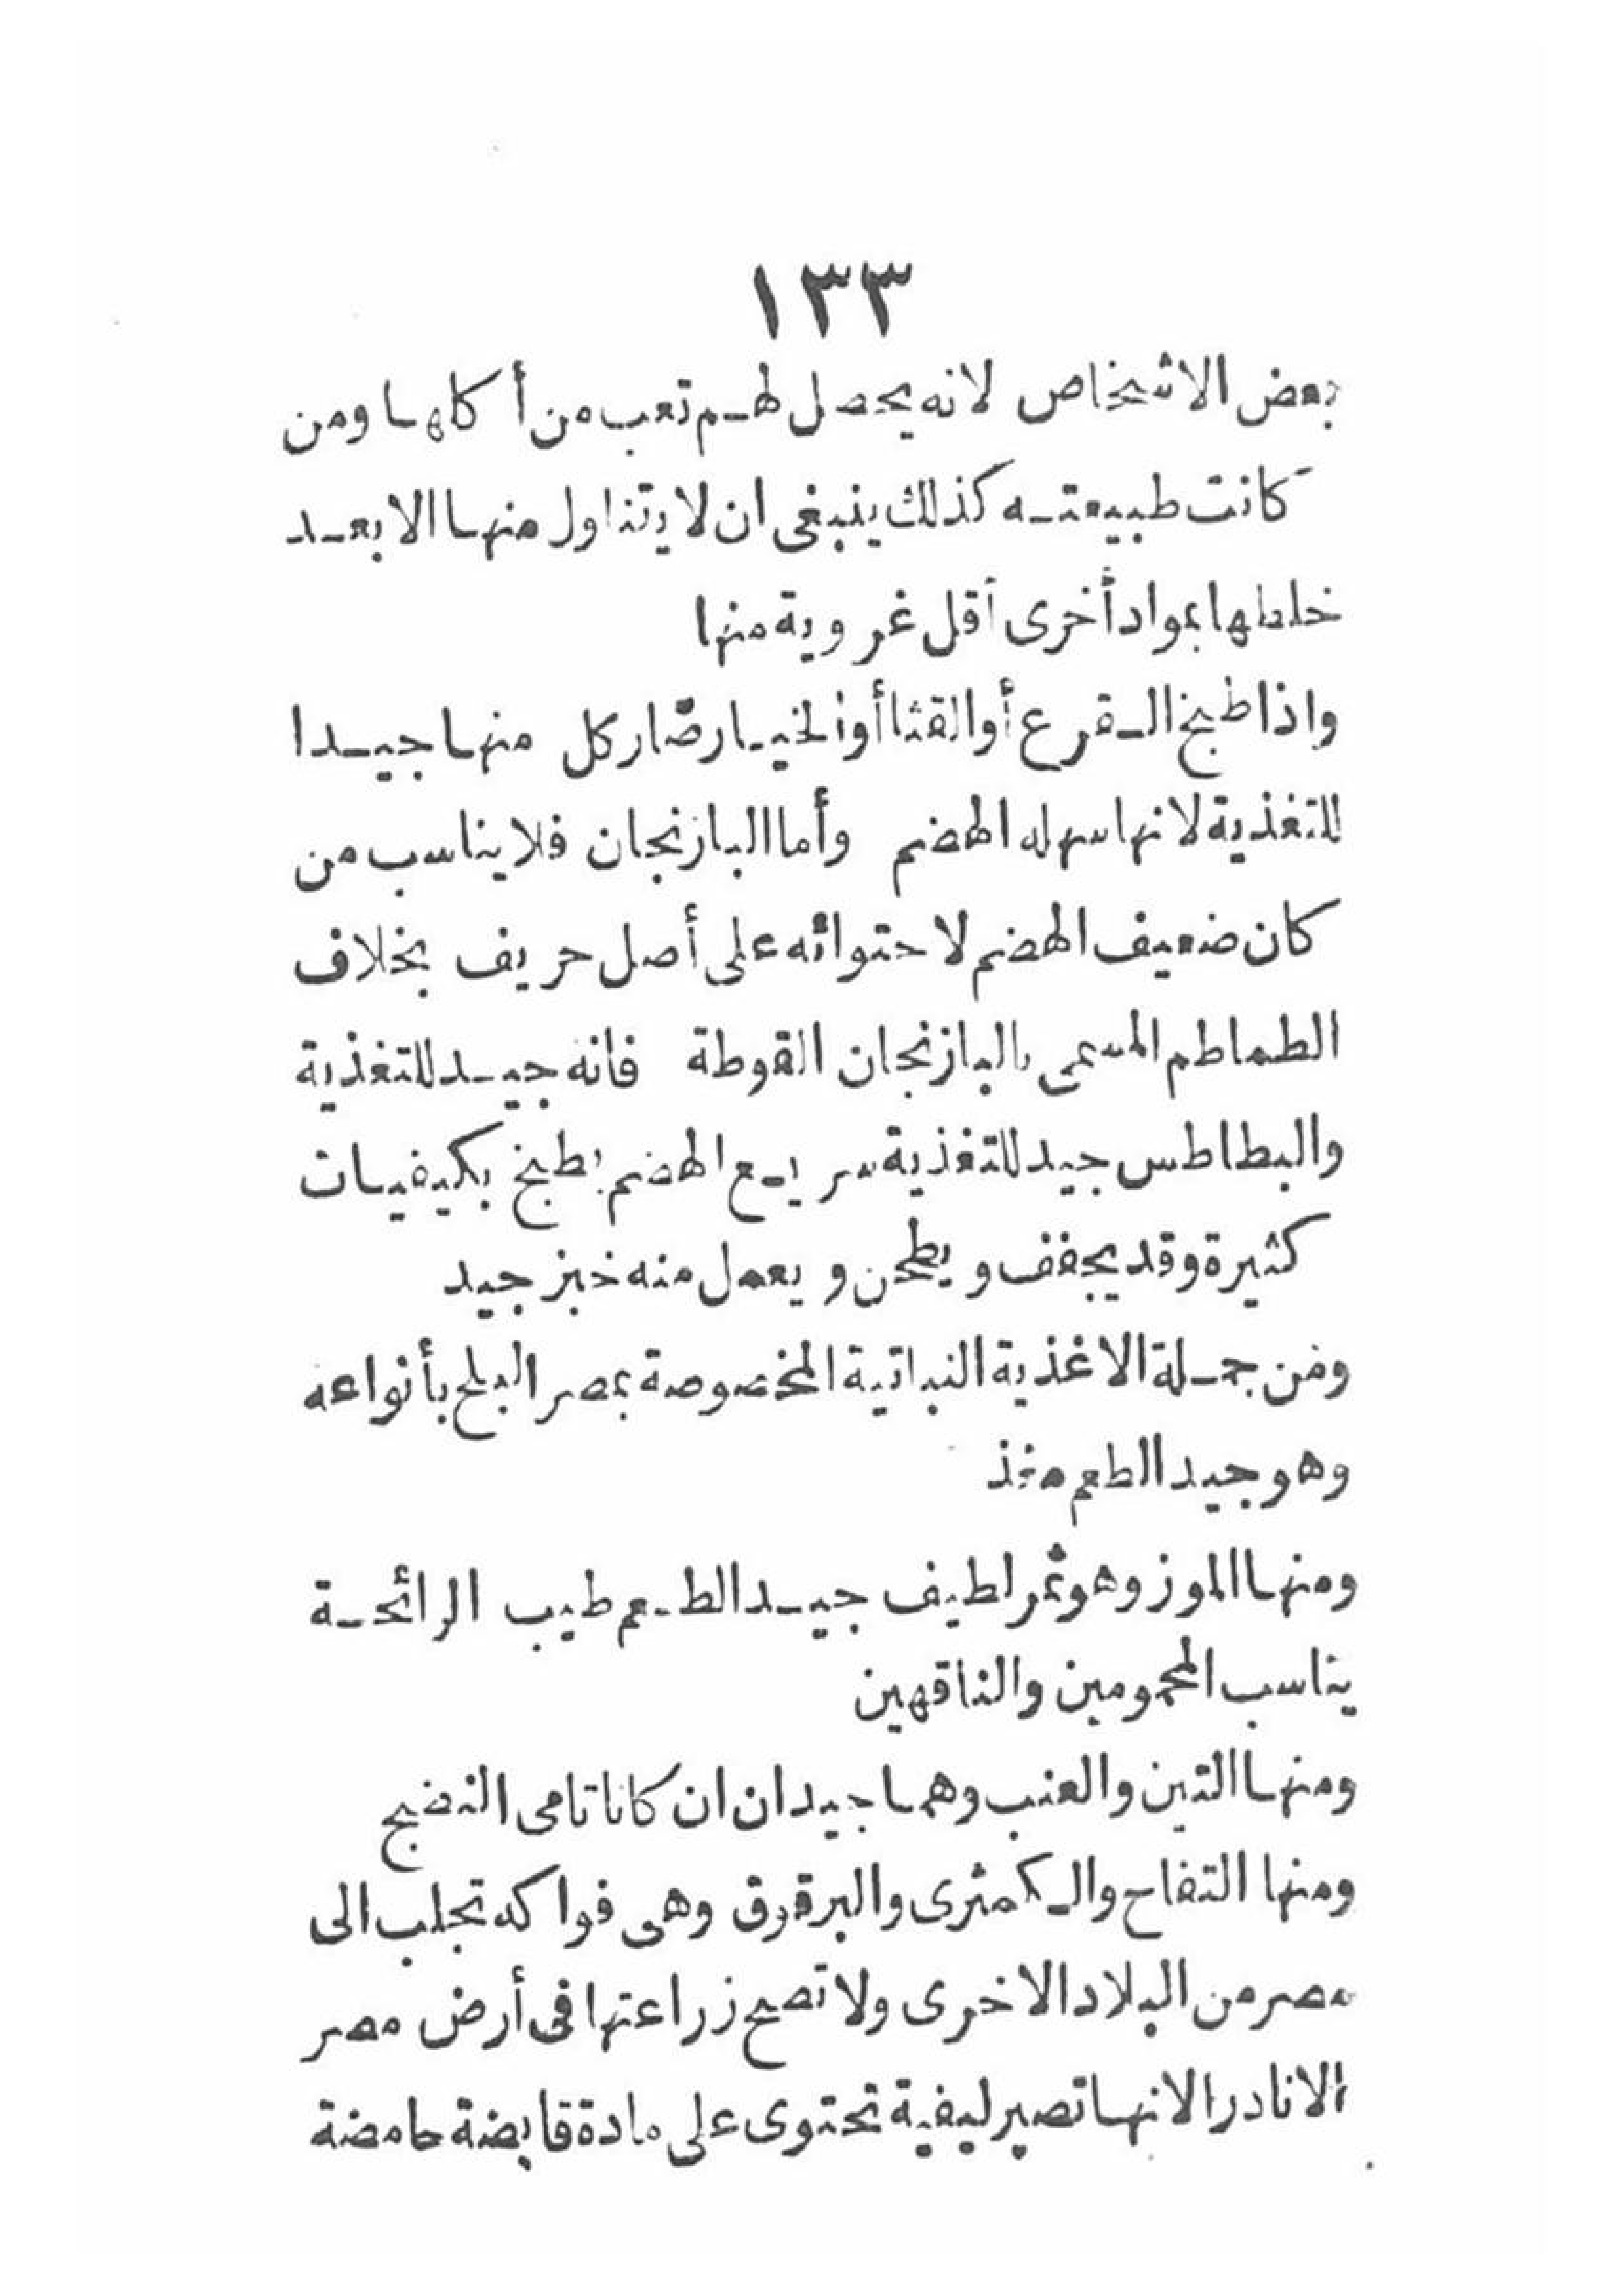 ١٣٣
بعض الاشخاص لانه يحصل لهم تعب من أكلها ومن
كانت طبيعته كذلك ينبغى ان لا يتناول منها الا بعد
خلطها بمواد أخرى أقل غروية منها
واذا طبخ القرع أو القثا أو الخيار صار كل منها جيدا
للتغذية لانها سهله الهضم وأما البازنجان فلا يناسب من
كان ضعيف الهضم لاحتوائه على أصل حريف بخلاف
الطماطم المسمى بالبازنجان القوطة فانه جيد للتغذية
والبطاطس جيد للتغذية سريع الهضم يطبخ بكيفيات
كثيرة وقد يجفف ويطحن ويعمل منه خبز جيد
ومن جملة الاغذية النباتية المخصوصة بمصر البلح بأنواعه
وهو جيد الطعم مغذ
ومنها الموز وهو ثمر لطيف جيد الطعم طيب الرائحة
يناسب المحمومين والناقهين
ومنها التين والعنب وهما جيدان ان كانا تامى النضج
ومنها التفاح والكمثرى والبرقوق وهى فواكه تجلب الى
مصر من البلاد الاخرى ولا تصح زراعتها فى أرض مصر
الا نادرا لانها تصير ليفية تحتوى على مادة قابضة حامضة